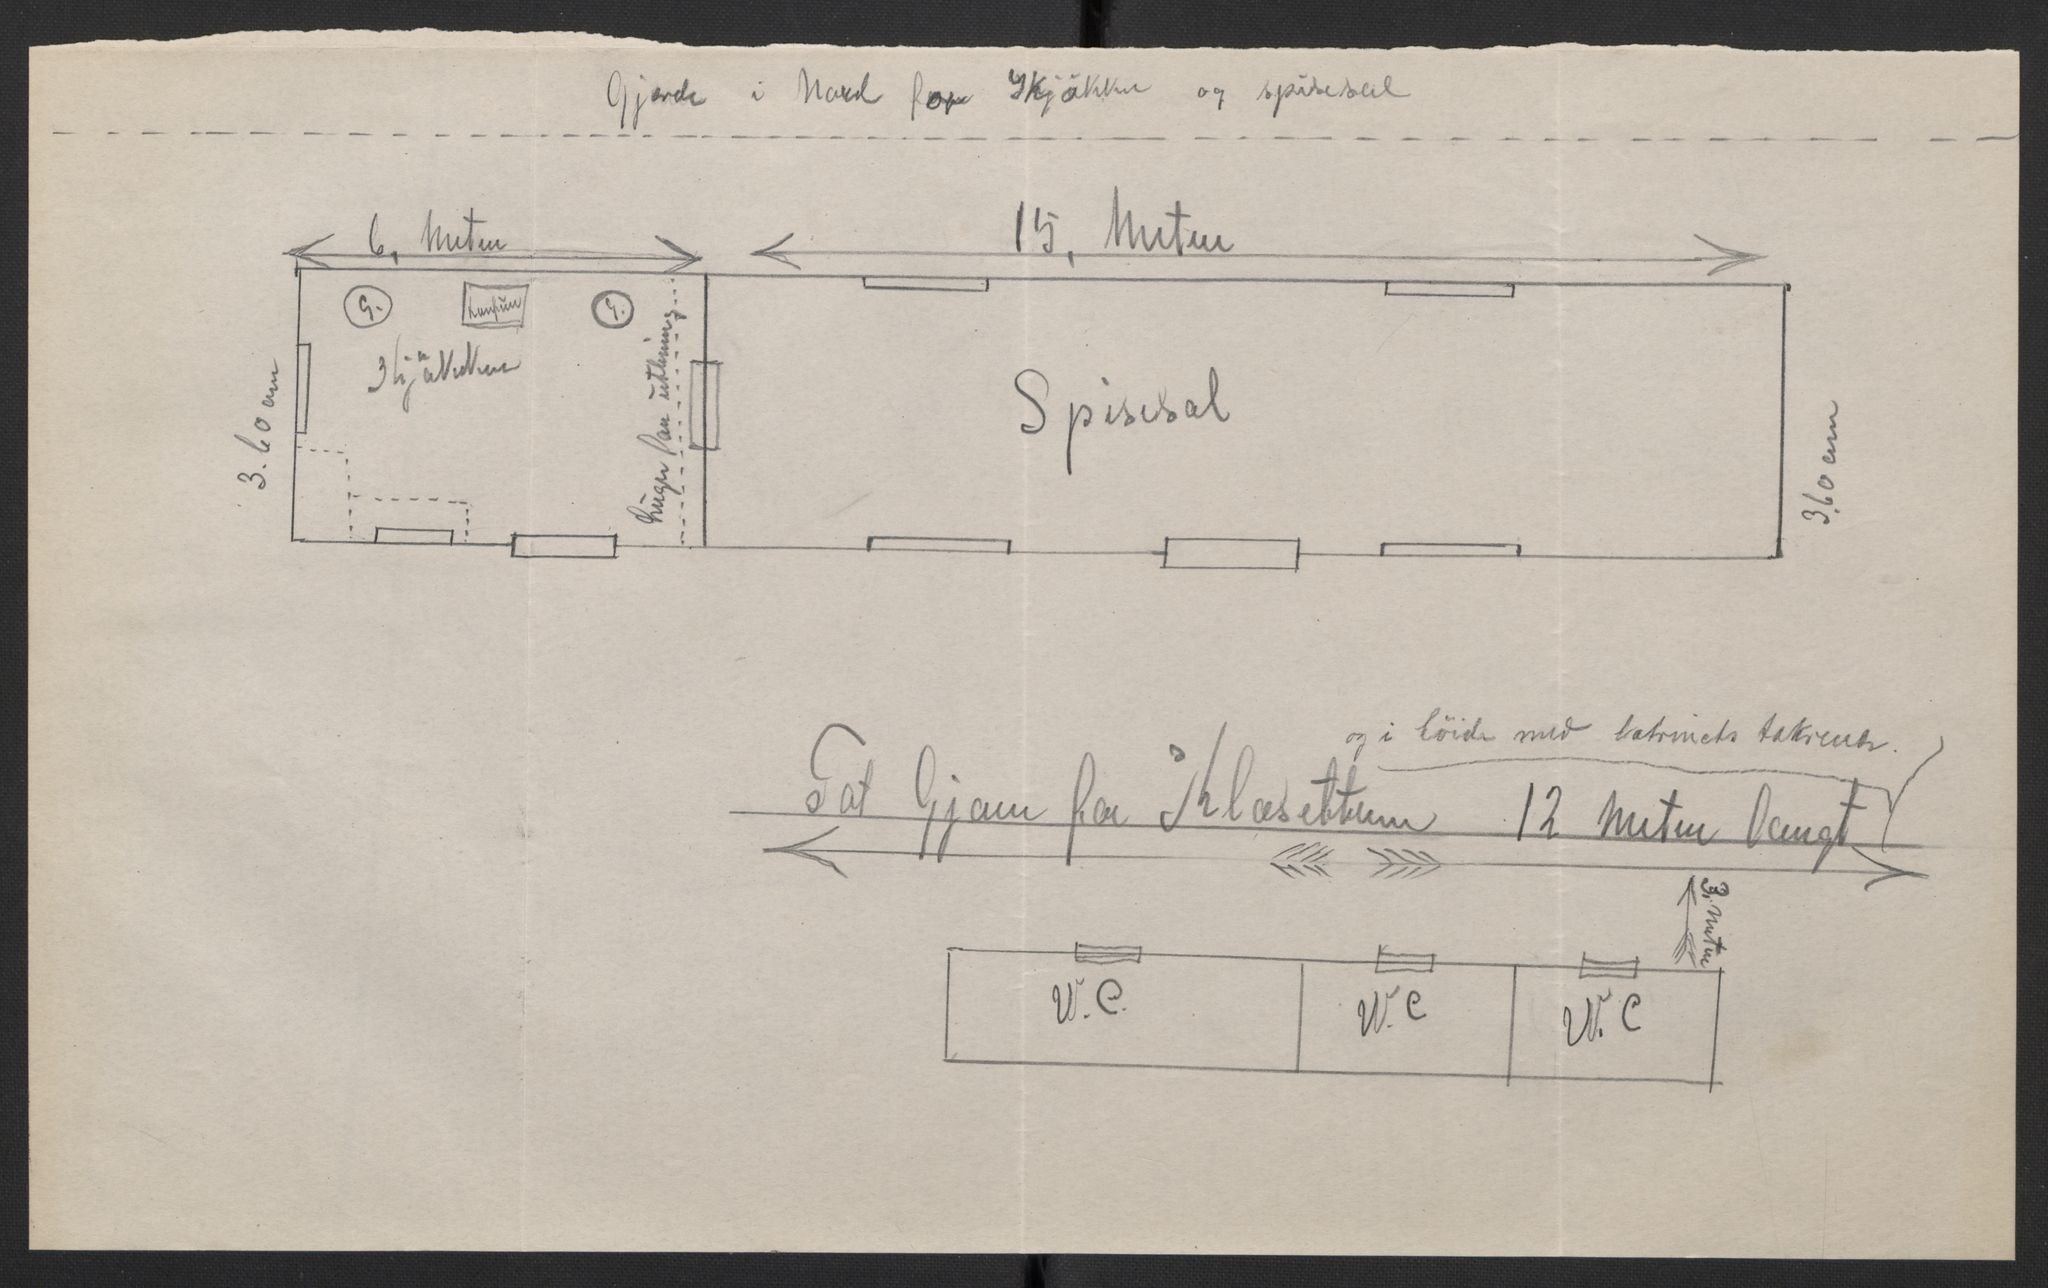 Gjerde i Nord for Skjøkken og spisesal
6, Meter
15, Meter
G.
komfür
G.
Skjøkken
3.60 cm
Lüger for utlevning
Spisesal
3,60 cm
og i höide med latrinets takrende.
Tat Gjerm for Klosettern 12 Meter langt
3. Meter
W.C.
W.C
W.C